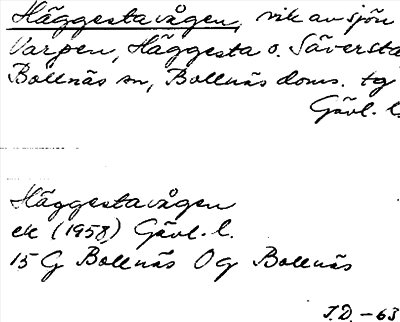 Häggestavågen, vik av sjön
Varpen, Häggesta o. Säversta
Bollnäs sn, Bollnäs doms. tg
Gävl. l.
Häggestavågen
ek (1958) Gävl. l.
15 G Bollnäs 0 g Bollnäs
J.D. -63